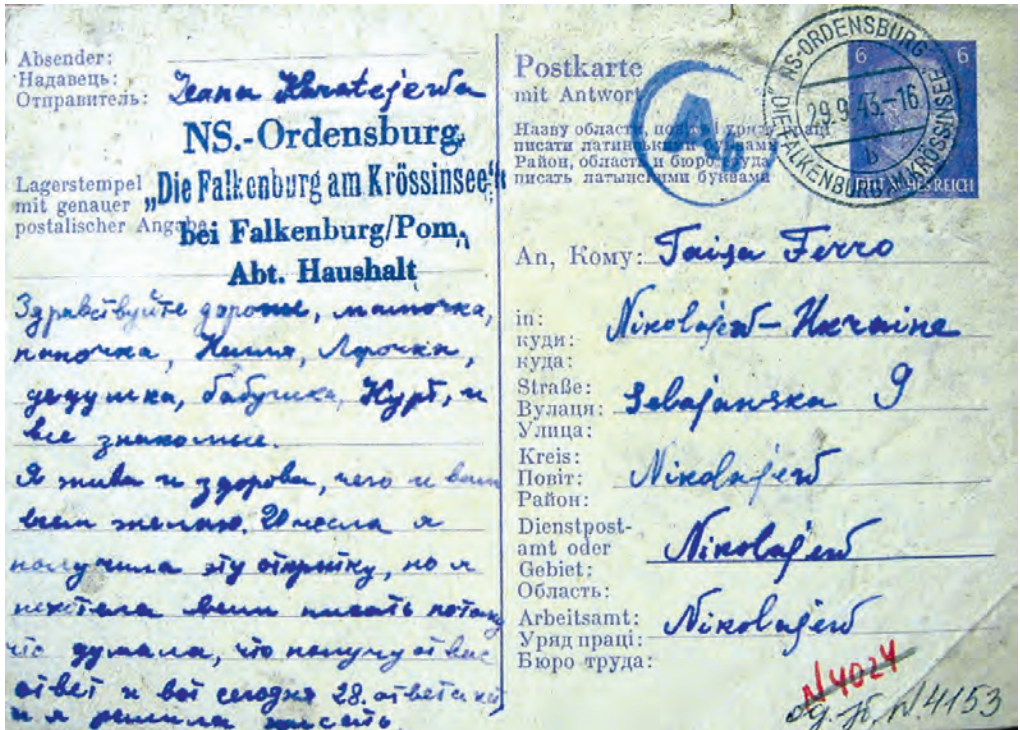 Absender:
Надавець:
Отправитель:
NS.-Ordensburg
Lagerstempel
mit genauer
postalischer Angabe
„Die Falkenburg am Krössinsee“
bei Falkenburg/Pom.
Abt. Haushalt
Здравствуйте дорогие, мамочка,
папочка, Нилля, Лорочка,
дедушка, бабушка, Курт, и
все знакомые.
Я жива и здорова, чего и вам
всем желаю. 20 числа я
получила эту открытку, но я
нехотела вам писать потому
что думала, что получу от вас
ответ и вот сегодня 28. ответа нет
и я решила писать.
Postkarte
mit Antwort
Назву области, повіту і уряду праці
писати латинськими буквами
Район, область и бюро труда
писать латынскими буквами
A
NS-ORDENSBURG
29.9.43-16
b
"DIE FALKENBURG A. KRÖSSINSEE"
6 6
DEUTSCHES REICH
An, Кому: Taisa Ferro
in:
куди:
куда:
Nikolajew - Ukraine
Straße:
Вулаця:
Улица:
9
Kreis:
Повіт:
Район:
Nikolajew
Dienstpost-
amt oder
Gebiet:
Область:
Nikolajew
Arbeitsamt:
Уряд праці:
Бюро труда:
Nikolajew
N4024
N.4153